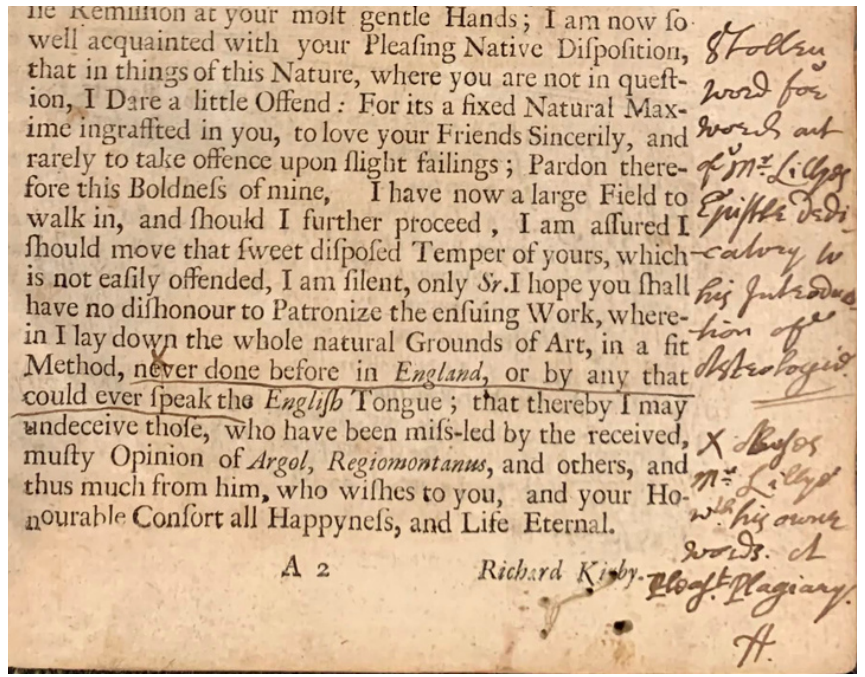 Remiſſion at your moſt gentle Hands; I am now ſo
well acquainted with your Pleaſing Native Diſpoſition,
that in things of this Nature, where you are not in queſt-
ion, I Dare a little Offend: For its a fixed Natural Max-
ime ingraffted in you, to love your Friends Sincerily, and
rarely to take offence upon ſlight failings; Pardon there-
fore this Boldneſs of mine, I have now a large Field to
walk in, and ſhould I further proceed, I am aſſured I
ſhould move that ſweet diſpoſed Temper of yours, which
is not eaſily offended, I am ſilent, only Sr. I hope you ſhall
have no diſhonour to Patronize the enſuing Work, where-
in I lay down the whole natural Grounds of Art, in a fit
Method, never done before in England, or by any that
could ever ſpeak the Engliſh Tongue; that thereby I may
undeceive thoſe, who have been miſs-led by the received,
muſty Opinion of Argol, Regiomontanus, and others, and
thus much from him, who wiſhes to you, and your Ho-
nourable Conſort all Happyneſs, and Life Eternal.
A 2 Richard Kirby.
Stollen
word for
word out
of Mr Lillyes
Epistle Dedi-
catory to
his Introduc-
tion of
Astrologie.
X Abuses
Mr Lillye
wth his owne
words. A
Plagiary.
H.